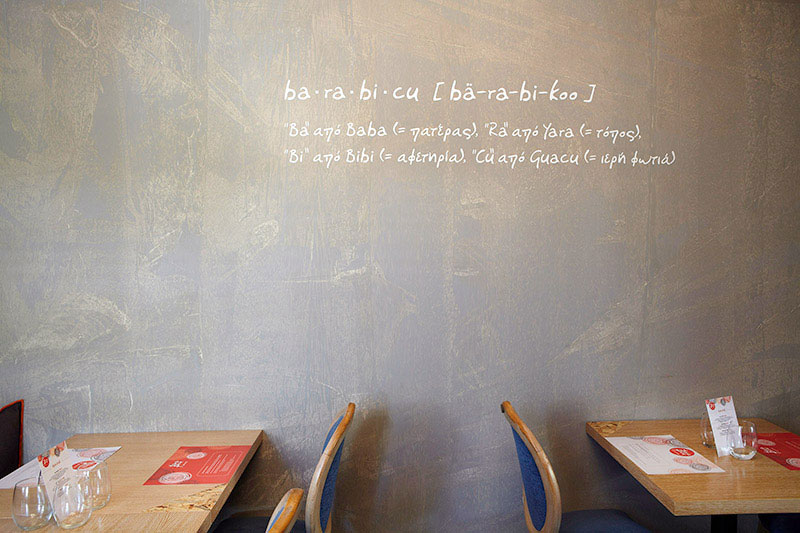 ba·ra·bi·cu [bä-ra-bi-koo]
"Ba" από Baba (= πατέρας), "Ra" από Yara (= τόπος),
"Bi" από Bibi (= αφετηρία), "Cu" από Guacu (= ιερή φωτιά)